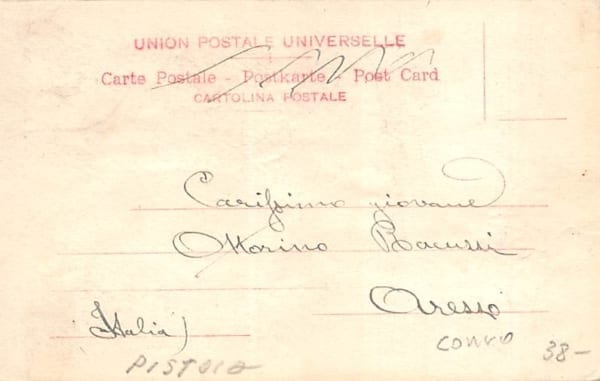 UNION POSTALE UNIVERSELLE
Carte Postale - Postkarte - Post Card
CARTOLINA POSTALE
Carissimo giovane
Ottorino Bacussi
Aresso
(Italia)
PISTOIA
38-